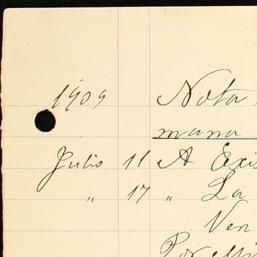 1909 Nota
mana
Julio 11 A Exis
" 17 " La
Ven